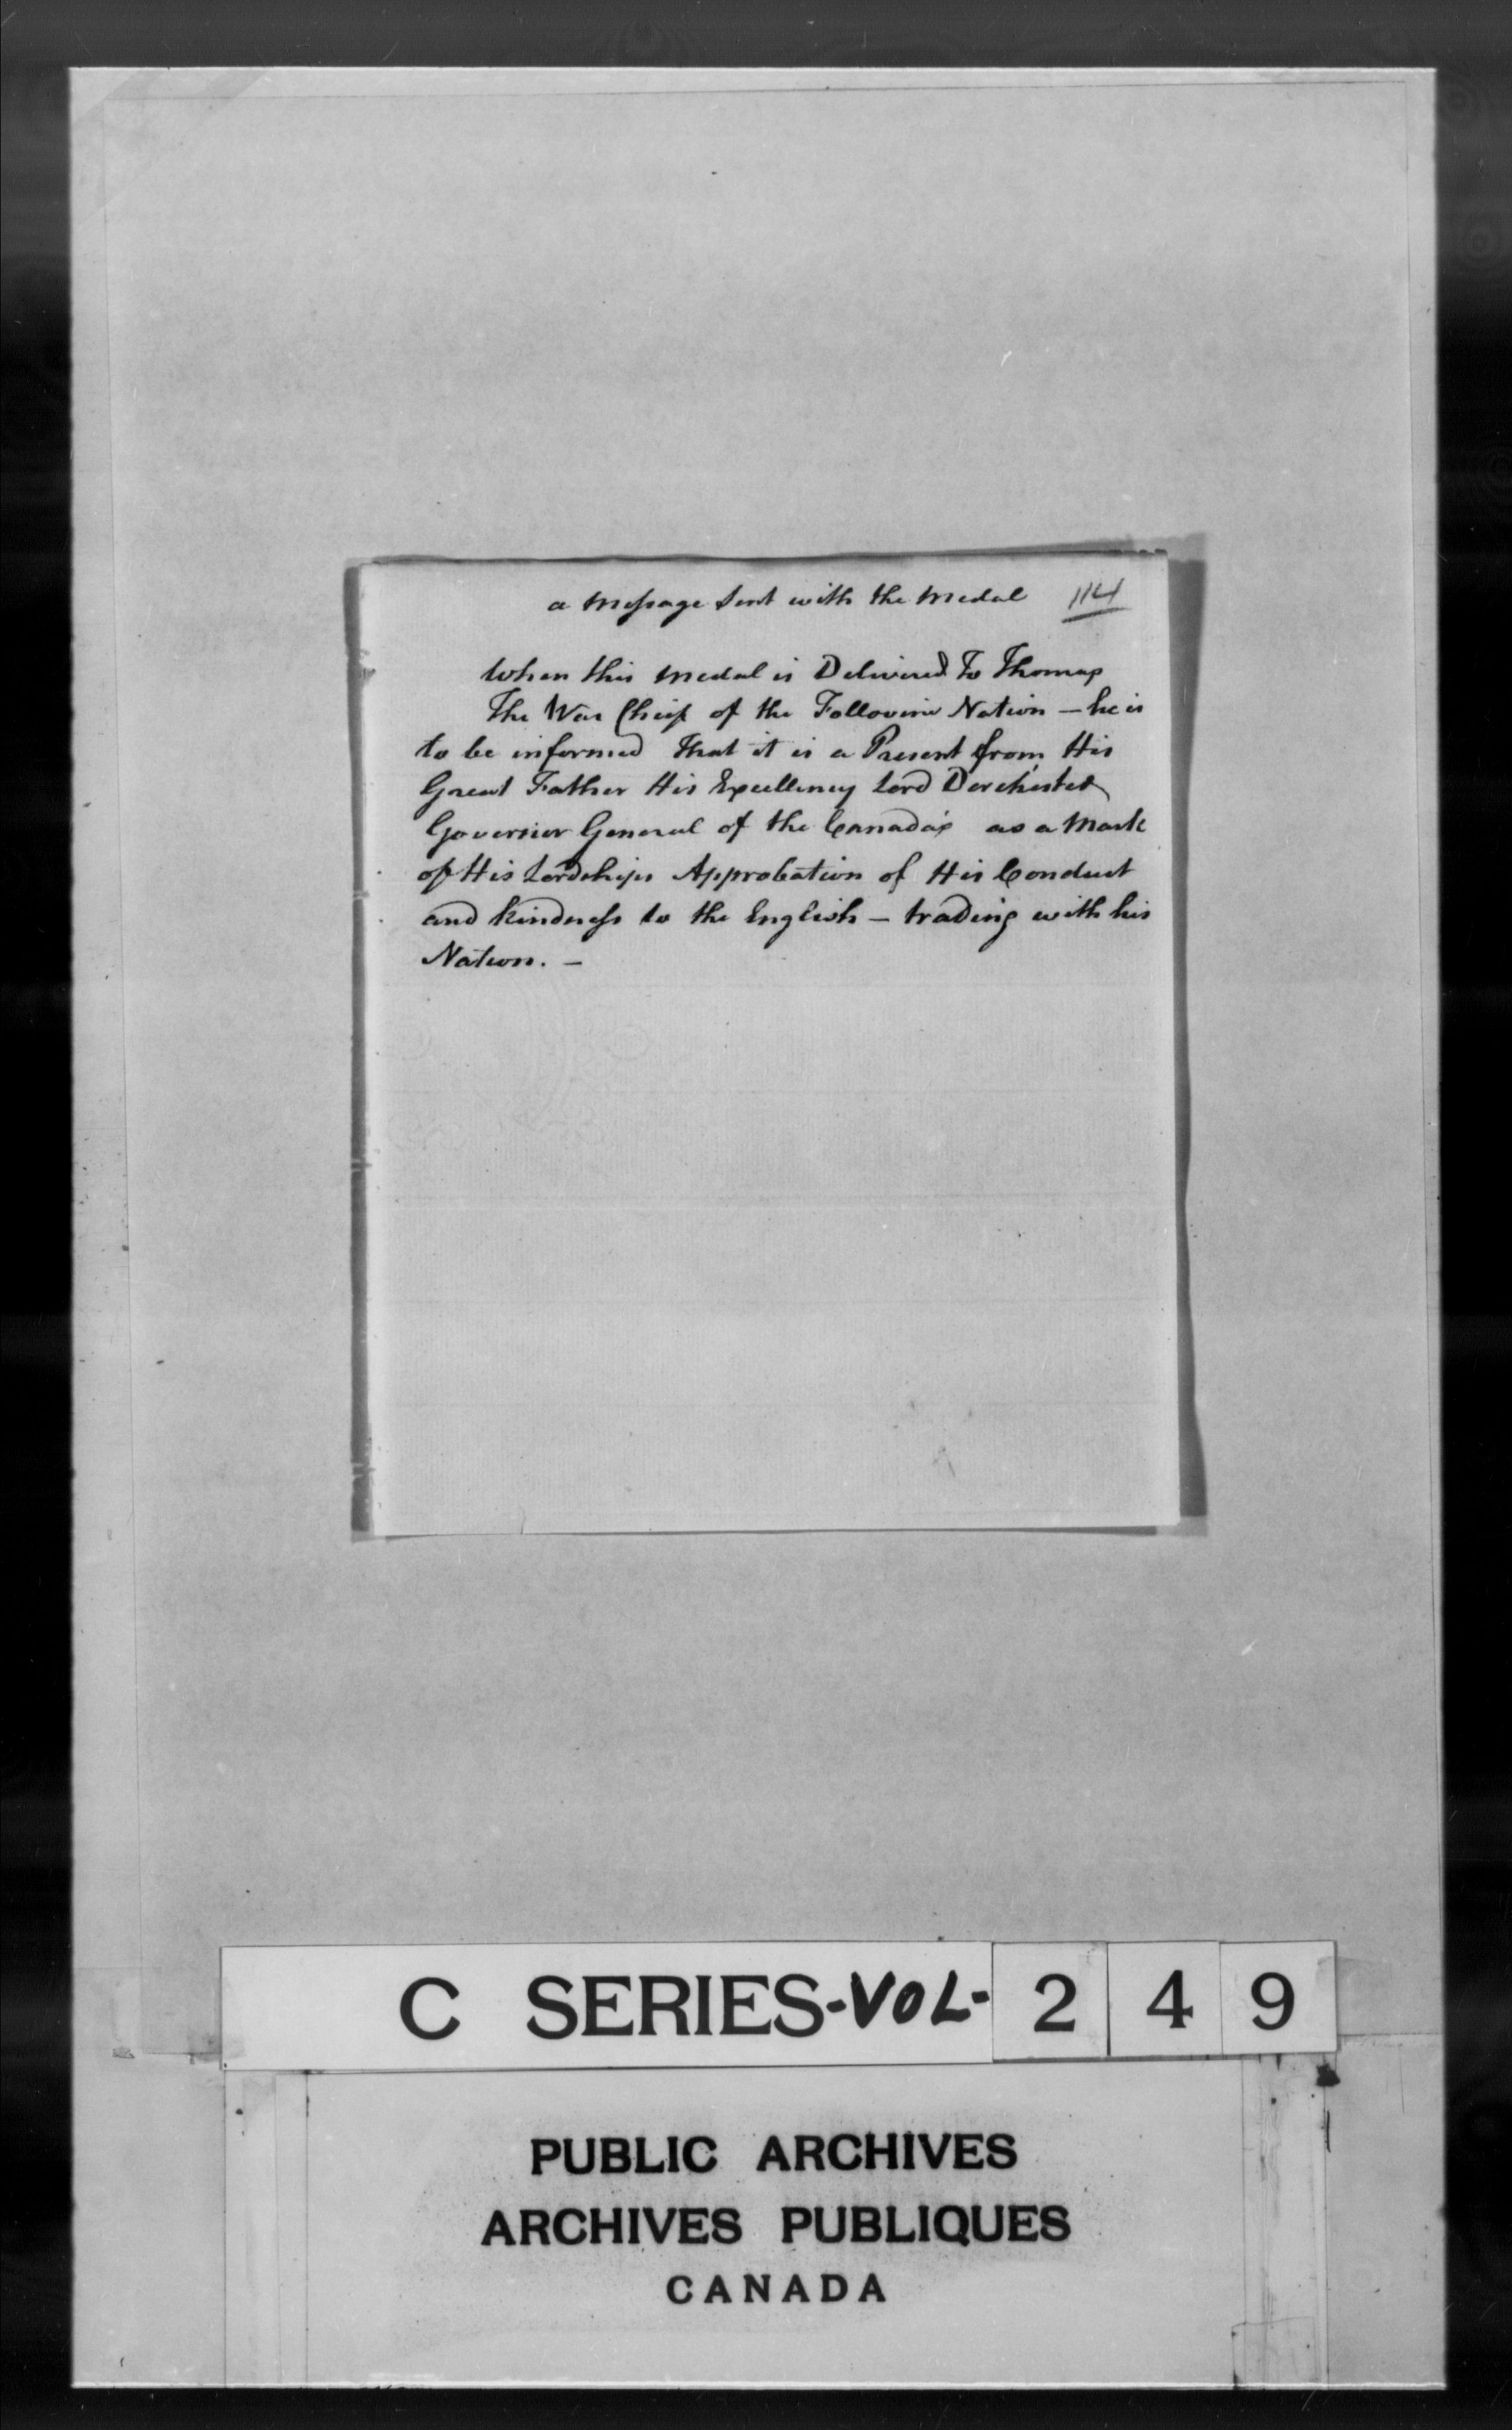 a Message Sent with the Medal 114
When this Medal is Delivered To Thomas
The War Chief of the Follovine Nation — he is
to be informed that it is a Present from His
Great Father His Excellency Lord Dorchester
Governor General of the Canada's as a Mark
of His Lordships Approbation of His Conduct
and kindness to the English — trading with his
Nation. —
C SERIES-VOL-249
PUBLIC ARCHIVES
ARCHIVES PUBLIQUES
CANADA